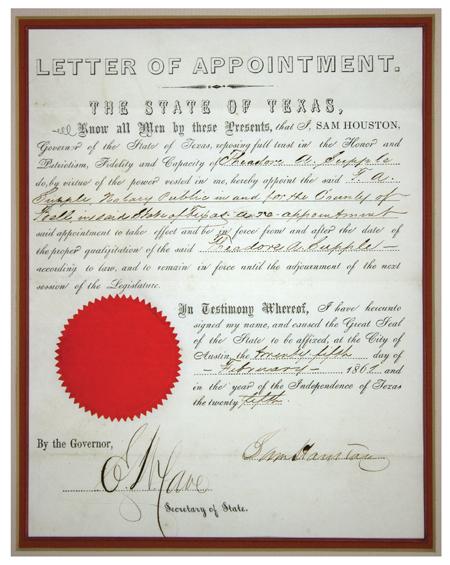 LETTER OF APPOINTMENT.
THE STATE OF TEXAS,
Know all Men by these Presents, that I, SAM HOUSTON,
Governor of the State of Texas, reposing full trust in the Honor and
Patriotism, Fidelity and Capacity of Theodore A. Supple
do, by virtue of the power vested in me, hereby appoint the said T. A.
Supple Notary Public in and for the County of
Bell in said State of Texas to re-appointment
said appointment to take effect and be in force from and after the date of
the proper qualification of the said Theodore A Supple
according to law, and to remain in force until the adjournment of the next
session of the Legislature.
In Testimony Whereof, I have hereunto
signed my name, and caused the Great Seal
of the State to be affixed, at the City of
Austin, the twenty fifth day of
February 1861 and
in the year of the Independence of Texas
the twenty fifth.
By the Governor,
Sam Houston
E. W. Cave
Secretary of State.